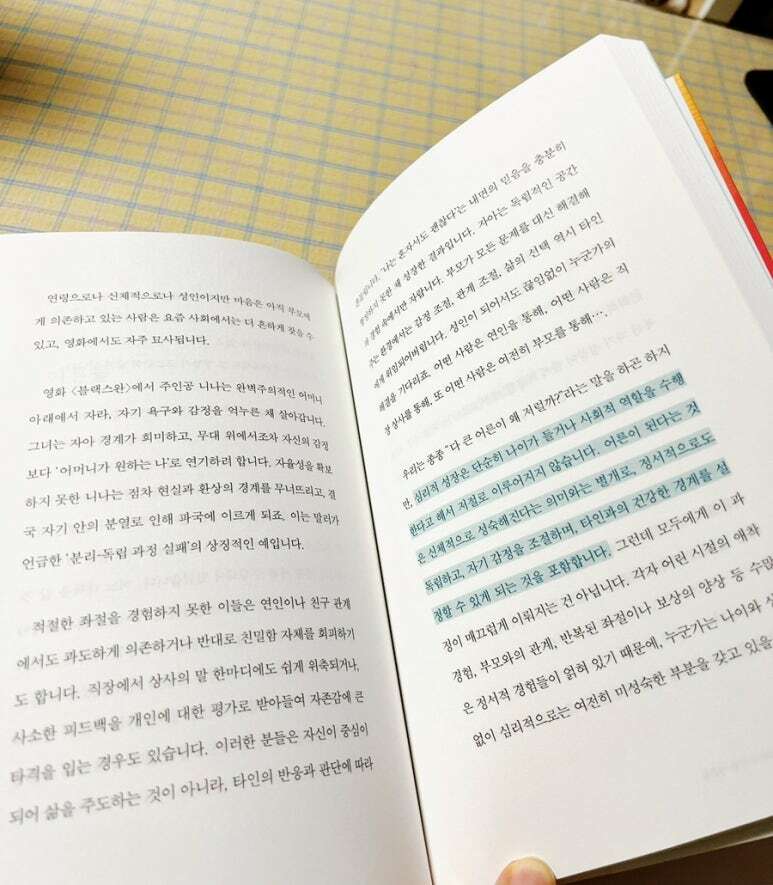 연령으로나 신체적으로나 성인이지만 마음은 아직 부모에
게 의존하고 있는 사람은 요즘 사회에서는 더 흔하게 찾을 수
있고, 영화에서도 자주 묘사됩니다.
영화 〈블랙스완〉에서 주인공 니나는 완벽주의적인 어머니
아래에서 자라, 자기 욕구와 감정을 억누른 채 살아갑니다.
그녀는 자아 경계가 희미하고, 무대 위에서조차 자신의 감정
보다 '어머니가 원하는 나'로 연기하려 합니다. 자율성을 확보
하지 못한 니나는 점차 현실과 환상의 경계를 무너뜨리고, 결
국 자기 안의 분열로 인해 파국에 이르게 되죠. 이는 말러가
언급한 '분리-독립 과정 실패'의 상징적인 예입니다.
적절한 좌절을 경험하지 못한 이들은 연인이나 친구 관계
에서도 과도하게 의존하거나 반대로 친밀함 자체를 회피하기
도 합니다. 직장에서 상사의 말 한마디에도 쉽게 위축되거나,
사소한 피드백을 개인에 대한 평가로 받아들여 자존감에 큰
타격을 입는 경우도 있습니다. 이러한 분들은 자신이 중심이
되어 삶을 주도하는 것이 아니라, 타인의 반응과 판단에 따라
'나는 혼자서도 괜찮다'는 내면의 믿음을 충분히
못한 채 성장한 결과입니다. 자아는 독립적인 공간
과 경험 속에서만 자랍니다. 부모가 모든 문제를 대신 해결해
주는 환경에서는 감정 조절, 관계 조절, 삶의 선택 역시 타인
에게 위임되어버립니다. 성인이 되어서도 끊임없이 누군가의
해결을 기다리죠. 어떤 사람은 연인을 통해, 어떤 사람은 직
장 상사를 통해, 또 어떤 사람은 여전히 부모를 통해….
우리는 종종 "다 큰 어른이 왜 저럴까?"라는 말을 하곤 하지
만, 심리적 성장은 단순히 나이가 들거나 사회적 역할을 수행
한다고 해서 저절로 이루어지지 않습니다. 어른이 된다는 것
은 신체적으로 성숙해진다는 의미와는 별개로, 정서적으로도
독립하고, 자기 감정을 조절하며, 타인과의 건강한 경계를 설
정할 수 있게 되는 것을 포함합니다. 그런데 모두에게 이 과
정이 매끄럽게 이뤄지는 건 아닙니다. 각자 어린 시절의 애착
경험, 부모와의 관계, 반복된 좌절이나 보상의 양상 등 수많
은 정서적 경험들이 얽혀 있기 때문에, 누군가는 나이와 상
없이 심리적으로는 여전히 미성숙한 부분을 갖고 있을